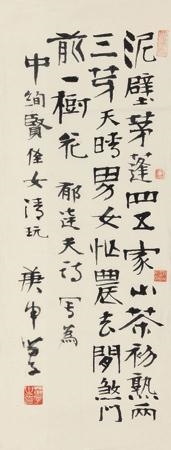 泥壁茅蓬四五家山茶初熟兩
三芽天晴男女忙農去閒煞門
前一樹花 郁達夫詩 寫為
中絢賢侄女清玩 庚申